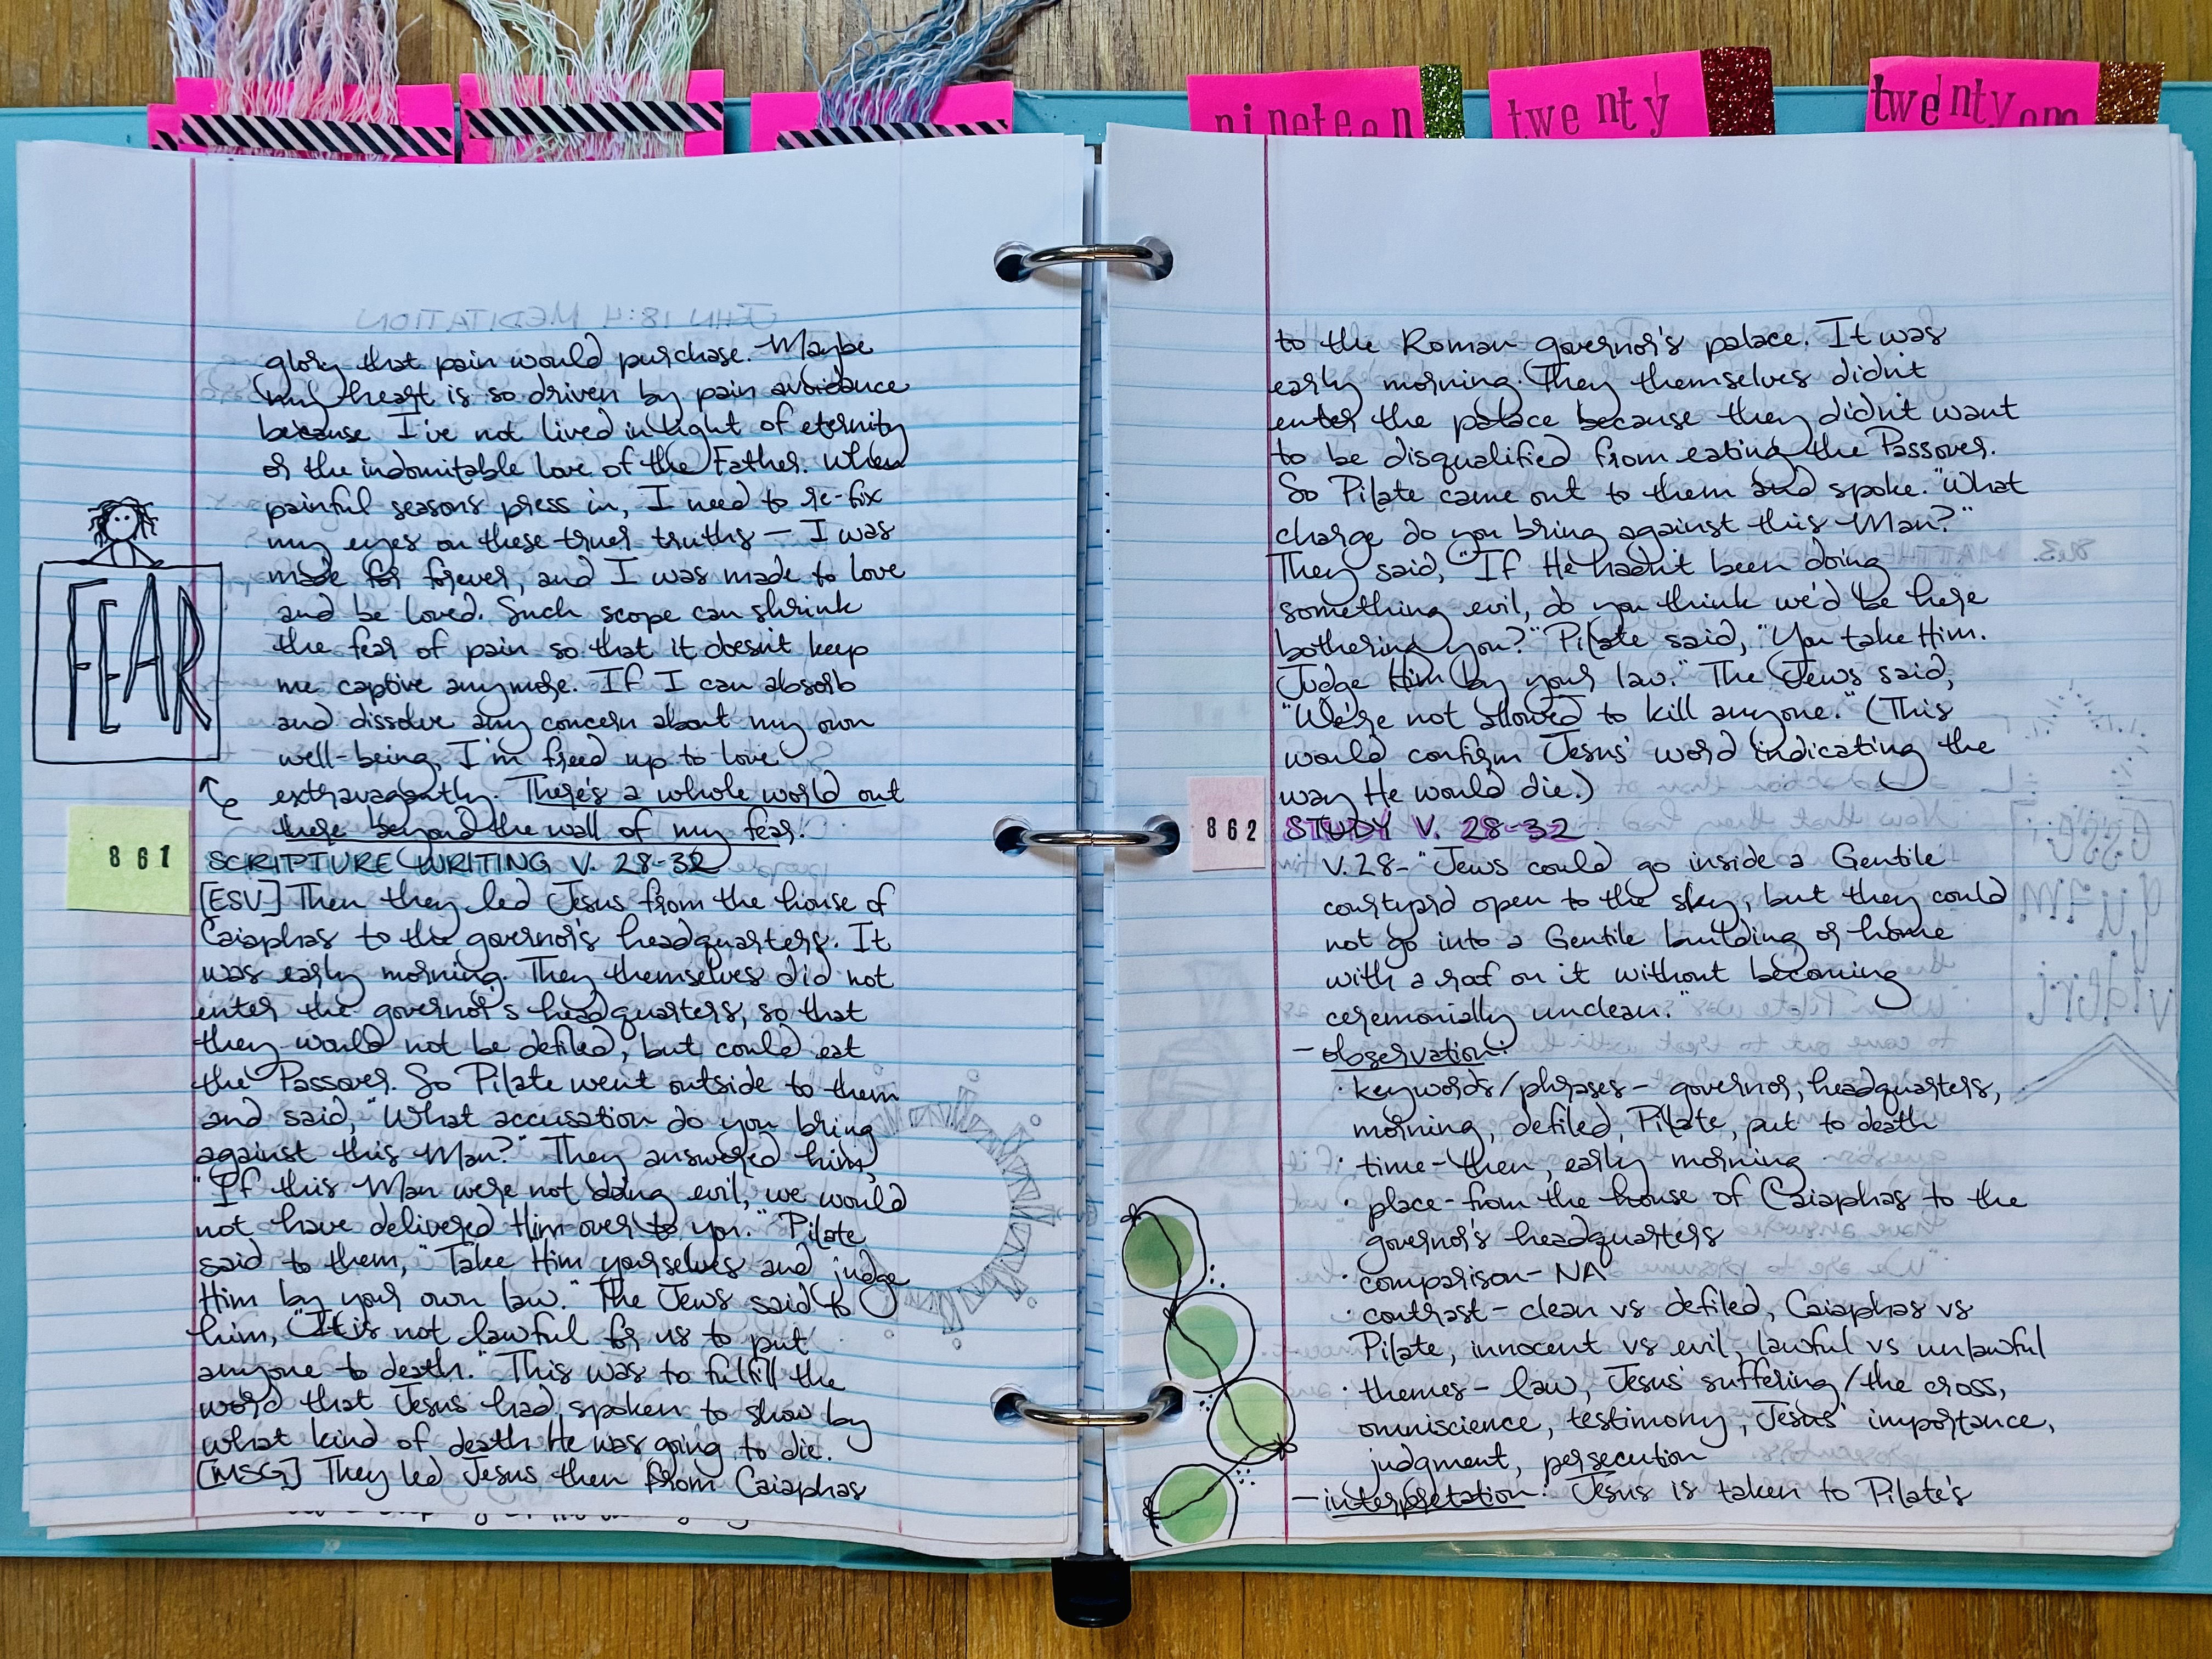 nineteen
twenty
twenty one
glory that pain would purchase. Maybe
my heart is so driven by pain avoidance
because I've not lived in light of eternity
or the indomitable love of the Father. When
painful seasons press in, I need to re-fix
my eyes on these truer truths — I was
made for forever, and I was made to love
and be loved. Such scope can shrink
the fear of pain so that it doesn't keep
me captive anymore. If I can absorb
and dissolve any concern about my own
well-being, I'm freed up to love
extravagantly. There's a whole world out
there beyond the wall of my fear.
FEAR
861
SCRIPTURE WRITING V. 28-32
[ESV] Then they led Jesus from the house of
Caiaphas to the governor's headquarters. It
was early morning. They themselves did not
enter the governor's headquarters, so that
they would not be defiled, but could eat
the Passover. So Pilate went outside to them
and said, "What accusation do you bring
against this Man?" They answered him,
"If this Man were not doing evil, we would
not have delivered Him over to you." Pilate
said to them, "Take Him yourselves and judge
Him by your own law." The Jews said to
him, "It is not lawful for us to put
anyone to death." This was to fulfill the
word that Jesus had spoken to show by
what kind of death He was going to die.
[MSG] They led Jesus then from Caiaphas
to the Roman governor's palace. It was
early morning. They themselves didn't
enter the palace because they didn't want
to be disqualified from eating the Passover.
So Pilate came out to them and spoke. "What
charge do you bring against this Man?"
They said, "If He hadn't been doing
something evil, do you think we'd be here
bothering you?" Pilate said, "You take Him.
Judge Him by your law." The Jews said,
"We're not allowed to kill anyone." (This
would confirm Jesus' word indicating the
way He would die.)
862
STUDY V. 28-32
V.28- "Jews could go inside a Gentile
courtyard open to the sky, but they could
not go into a Gentile building or home
with a roof on it without becoming
ceremonially unclean."
- observation:
· keywords/phrases - governor, headquarters,
morning, defiled, Pilate, put to death
· time - then, early morning
· place - from the house of Caiaphas to the
governor's headquarters
· comparison - NA
· contrast - clean vs defiled, Caiaphas vs
Pilate, innocent vs evil, lawful vs unlawful
· themes - law, Jesus' suffering/the cross,
omniscience, testimony, Jesus' importance,
judgment, persecution
- interpretation: Jesus is taken to Pilate's